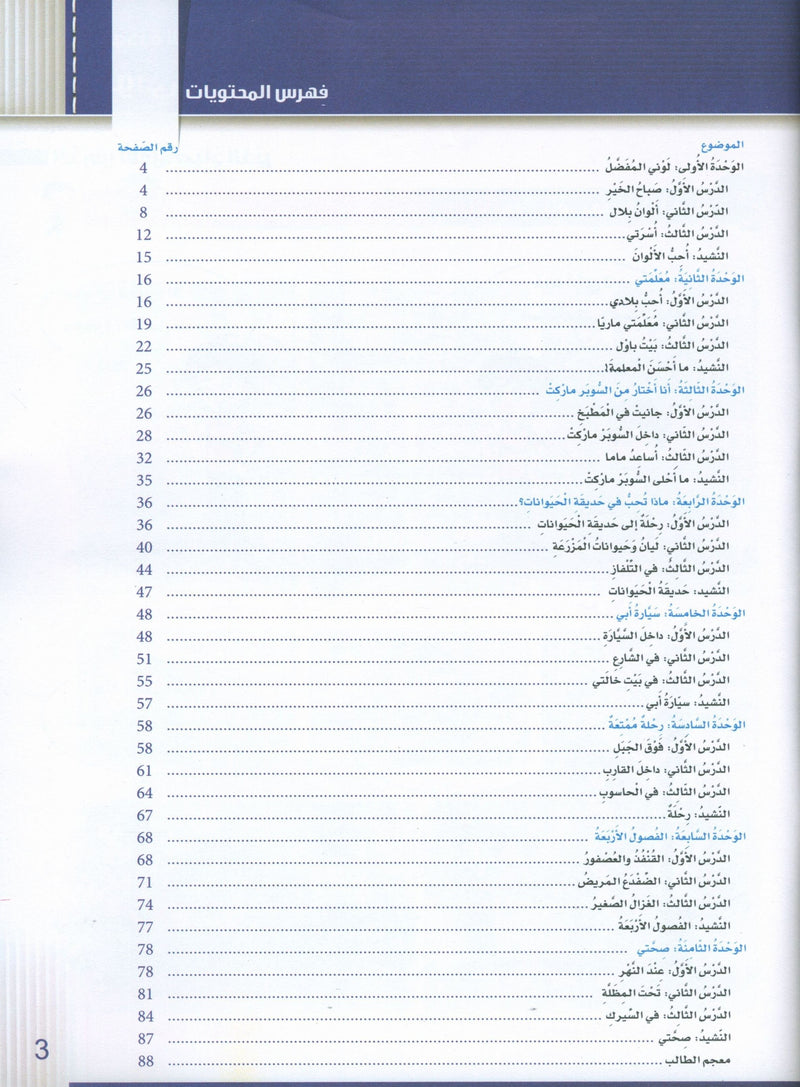 فهرس المحتويات
الموضوع رقم الصّفحة
الوَحْدَةُ الأُولى: لَوْني المُفَضَّلُ ........ 4
الدَّرْسُ الأَوَّلُ: صَباحُ الخَيْرِ ........ 4
الدَّرْسُ الثّاني: أَلْوانُ بِلال ........ 8
الدَّرْسُ الثّالِثُ: أُسْرَتي ........ 12
النَّشيدُ: أُحِبُّ الأَلْوانَ ........ 15
الوَحْدَةُ الثّانِيَةُ: مُعَلِّمَتي ........ 16
الدَّرْسُ الأَوَّلُ: أُحِبُّ بِلادي ........ 16
الدَّرْسُ الثّاني: مُعَلِّمَتي ماريّا ........ 19
الدَّرْسُ الثّالِثُ: بَيْتُ باوْل ........ 22
النَّشيدُ: ما أَحْسَنَ المعلمة! ........ 25
الوَحْدَةُ الثّالِثَةُ: أَنا أَخْتارُ مِنَ السُّوبَر مارْكِتْ ........ 26
الدَّرْسُ الأَوَّلُ: جانيتْ في الْمَطْبَخِ ........ 26
الدَّرْسُ الثّاني: داخِلَ السُّوبَرْ مارْكِتْ ........ 28
الدَّرْسُ الثّالِثُ: أُساعِدُ ماما ........ 32
النَّشيدُ: ما أَحْلى السُّوبَرْ مارْكِتْ ........ 35
الوَحْدَةُ الرّابِعَةُ: ماذا تُحِبُّ في حَديقَةِ الْحَيَوانات؟ ........ 36
الدَّرْسُ الأَوَّلُ: رِحْلَةٌ إلى حَديقَةِ الْحَيَوانات ........ 36
الدَّرْسُ الثّاني: لَيانُ وَحَيواناتُ المَزْرَعَةِ ........ 40
الدَّرْسُ الثّالِثُ: في التِّلْفازِ ........ 44
النَّشيد: حَديقَةُ الْحَيَوانات ........ 47
الوَحْدَةُ الخامِسَةُ: سَيَّارةُ أَبي ........ 48
الدَّرْسُ الأَوَّلُ: داخِلَ السَّيَّارَةِ ........ 48
الدَّرْسُ الثّاني: في الشّارِعِ ........ 51
الدَّرْسُ الثّالِثُ: في بَيْتِ خالَتي ........ 55
النَّشيدُ: سيّارَةُ أَبي ........ 57
الوَحْدَةُ السّادِسَةُ: رِحْلةٌ مُمْتِعَةٌ ........ 58
الدَّرْسُ الأَوَّلُ: فَوْقَ الجَبَلِ ........ 58
الدَّرْسُ الثّاني: داخِلَ القارِبِ ........ 61
الدَّرْسُ الثّالِثُ: في الحاسوبِ ........ 64
النَّشيدُ: رِحْلَةٌ ........ 67
الوَحْدَةُ السّابِعَةُ: الفُصولُ الأَرْبَعَةُ ........ 68
الدَّرْسُ الأَوَّلُ: القُنْفُذُ والعُصْفورُ ........ 68
الدَّرْسُ الثّاني: الضِّفْدَعُ المَريضُ ........ 71
الدَّرْسُ الثّالِثُ: الغَزالُ الصَّغيرُ ........ 74
النَّشيدُ: الفُصولُ الأَرْبَعَةُ ........ 77
الوَحْدَةُ الثّامِنَةُ: صِحَّتي ........ 78
الدَّرْسُ الأَوَّلُ: عِنْدَ النَّهْرِ ........ 78
الدَّرْسُ الثّاني: تَحْتَ المِظَلَّةِ ........ 81
الدَّرْسُ الثّالِثُ: في السّيركِ ........ 84
النَّشيدُ: صِحَّتي ........ 87
معجم الطالب ........ 88
3